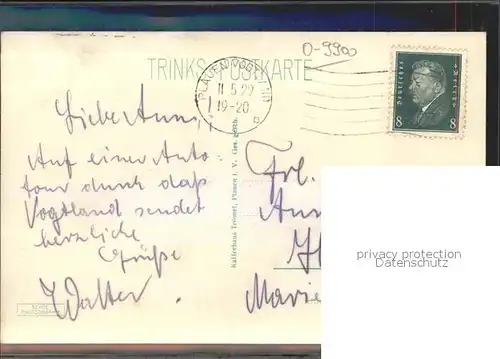 O-9900
TRINKS POSTKARTE
PLAUEN (VOGTLAND)
11.5.29
19-20
b
Deutsches Reich
8 8
Liebe Anni,
Auf einer Auto-
tour durch daß
Vogtland sendet
herzliche
Grüße
Walter
Kaffeehaus Trömel, Plauen i. V. Ges. gesch.
Frl.
Marie
privacy protection
Datenschutz